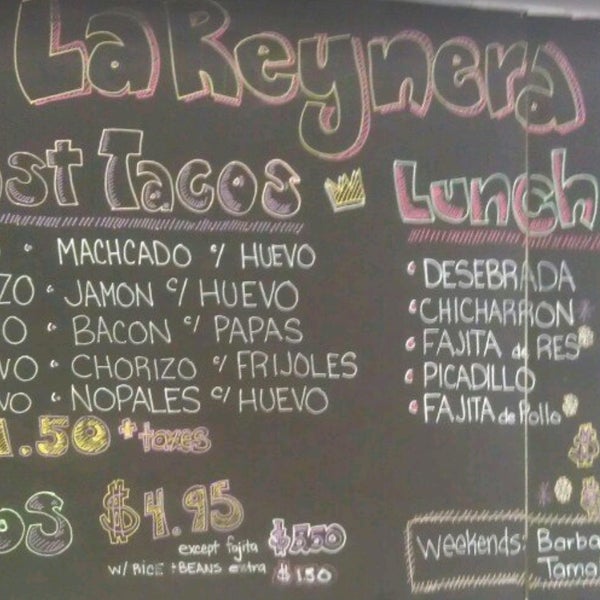 La Reynera
st Tacos
MACHCADO c/ HUEVO
ZO • JAMON c/ HUEVO
O • BACON c/ PAPAS
VO • CHORIZO c/ FRIJOLES
VO • NOPALES c/ HUEVO
1.50 + taxes
OS $4.95
except fajita $5.50
W/ RICE + BEANS extra $1.50
Lunch
• DESEBRADA
• CHICHARRON *
• FAJITA de RES
• PICADILLO
• FAJITA de Pollo
$
Weekends: Barba
Tama